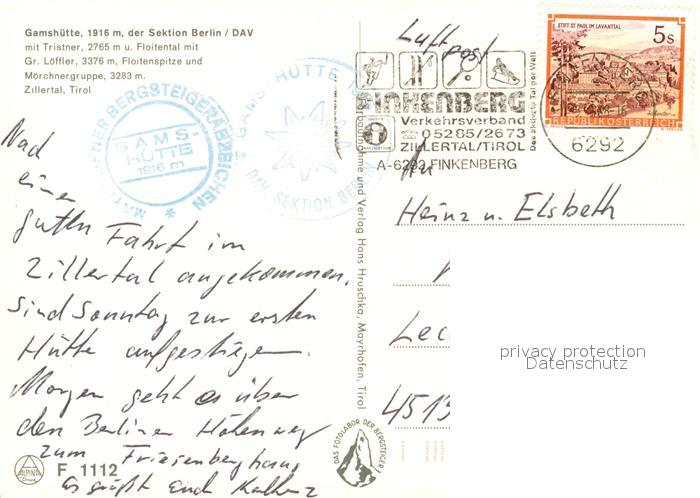 Gamshütte, 1916 m, der Sektion Berlin / DAV
mit Tristner, 2765 m u. Floitental mit
Gr. Löffler, 3376 m, Floitenspitze und
Mörchnergruppe, 3283 m.
Zillertal, Tirol
MAYRHOFNER BERGSTEIGERABZEICHEN
GAMS-
HÜTTE
1916 m
GAMSHÜTTE
DAV SEKTION BERLIN
Nach
einer
guten Fahrt im
Zillertal angekommen,
sind Sonntag zur ersten
Hütte aufgestiegen.
Morgen geht es über
den Berliner Höhenweg
zum Friesenberghaus
Es grüßt euch
F 1112
und Verlag Hans Hruschka, Mayrhofen, Tirol
DAS FOTOLABOR DER BERGSTEIGER
Luftpost
FINKENBERG
Verkehrsverband
☎ 05285/2673
ZILLERTAL/TIROL
A-6292 FINKENBERG
Das schönste Tal der Welt
STIFT ST. PAUL IM LAVANTTAL
5s
REPUBLIK ÖSTERREICH
6292
An
Heinz u. Elsbeth
Lec
4513
privacy protection
Datenschutz